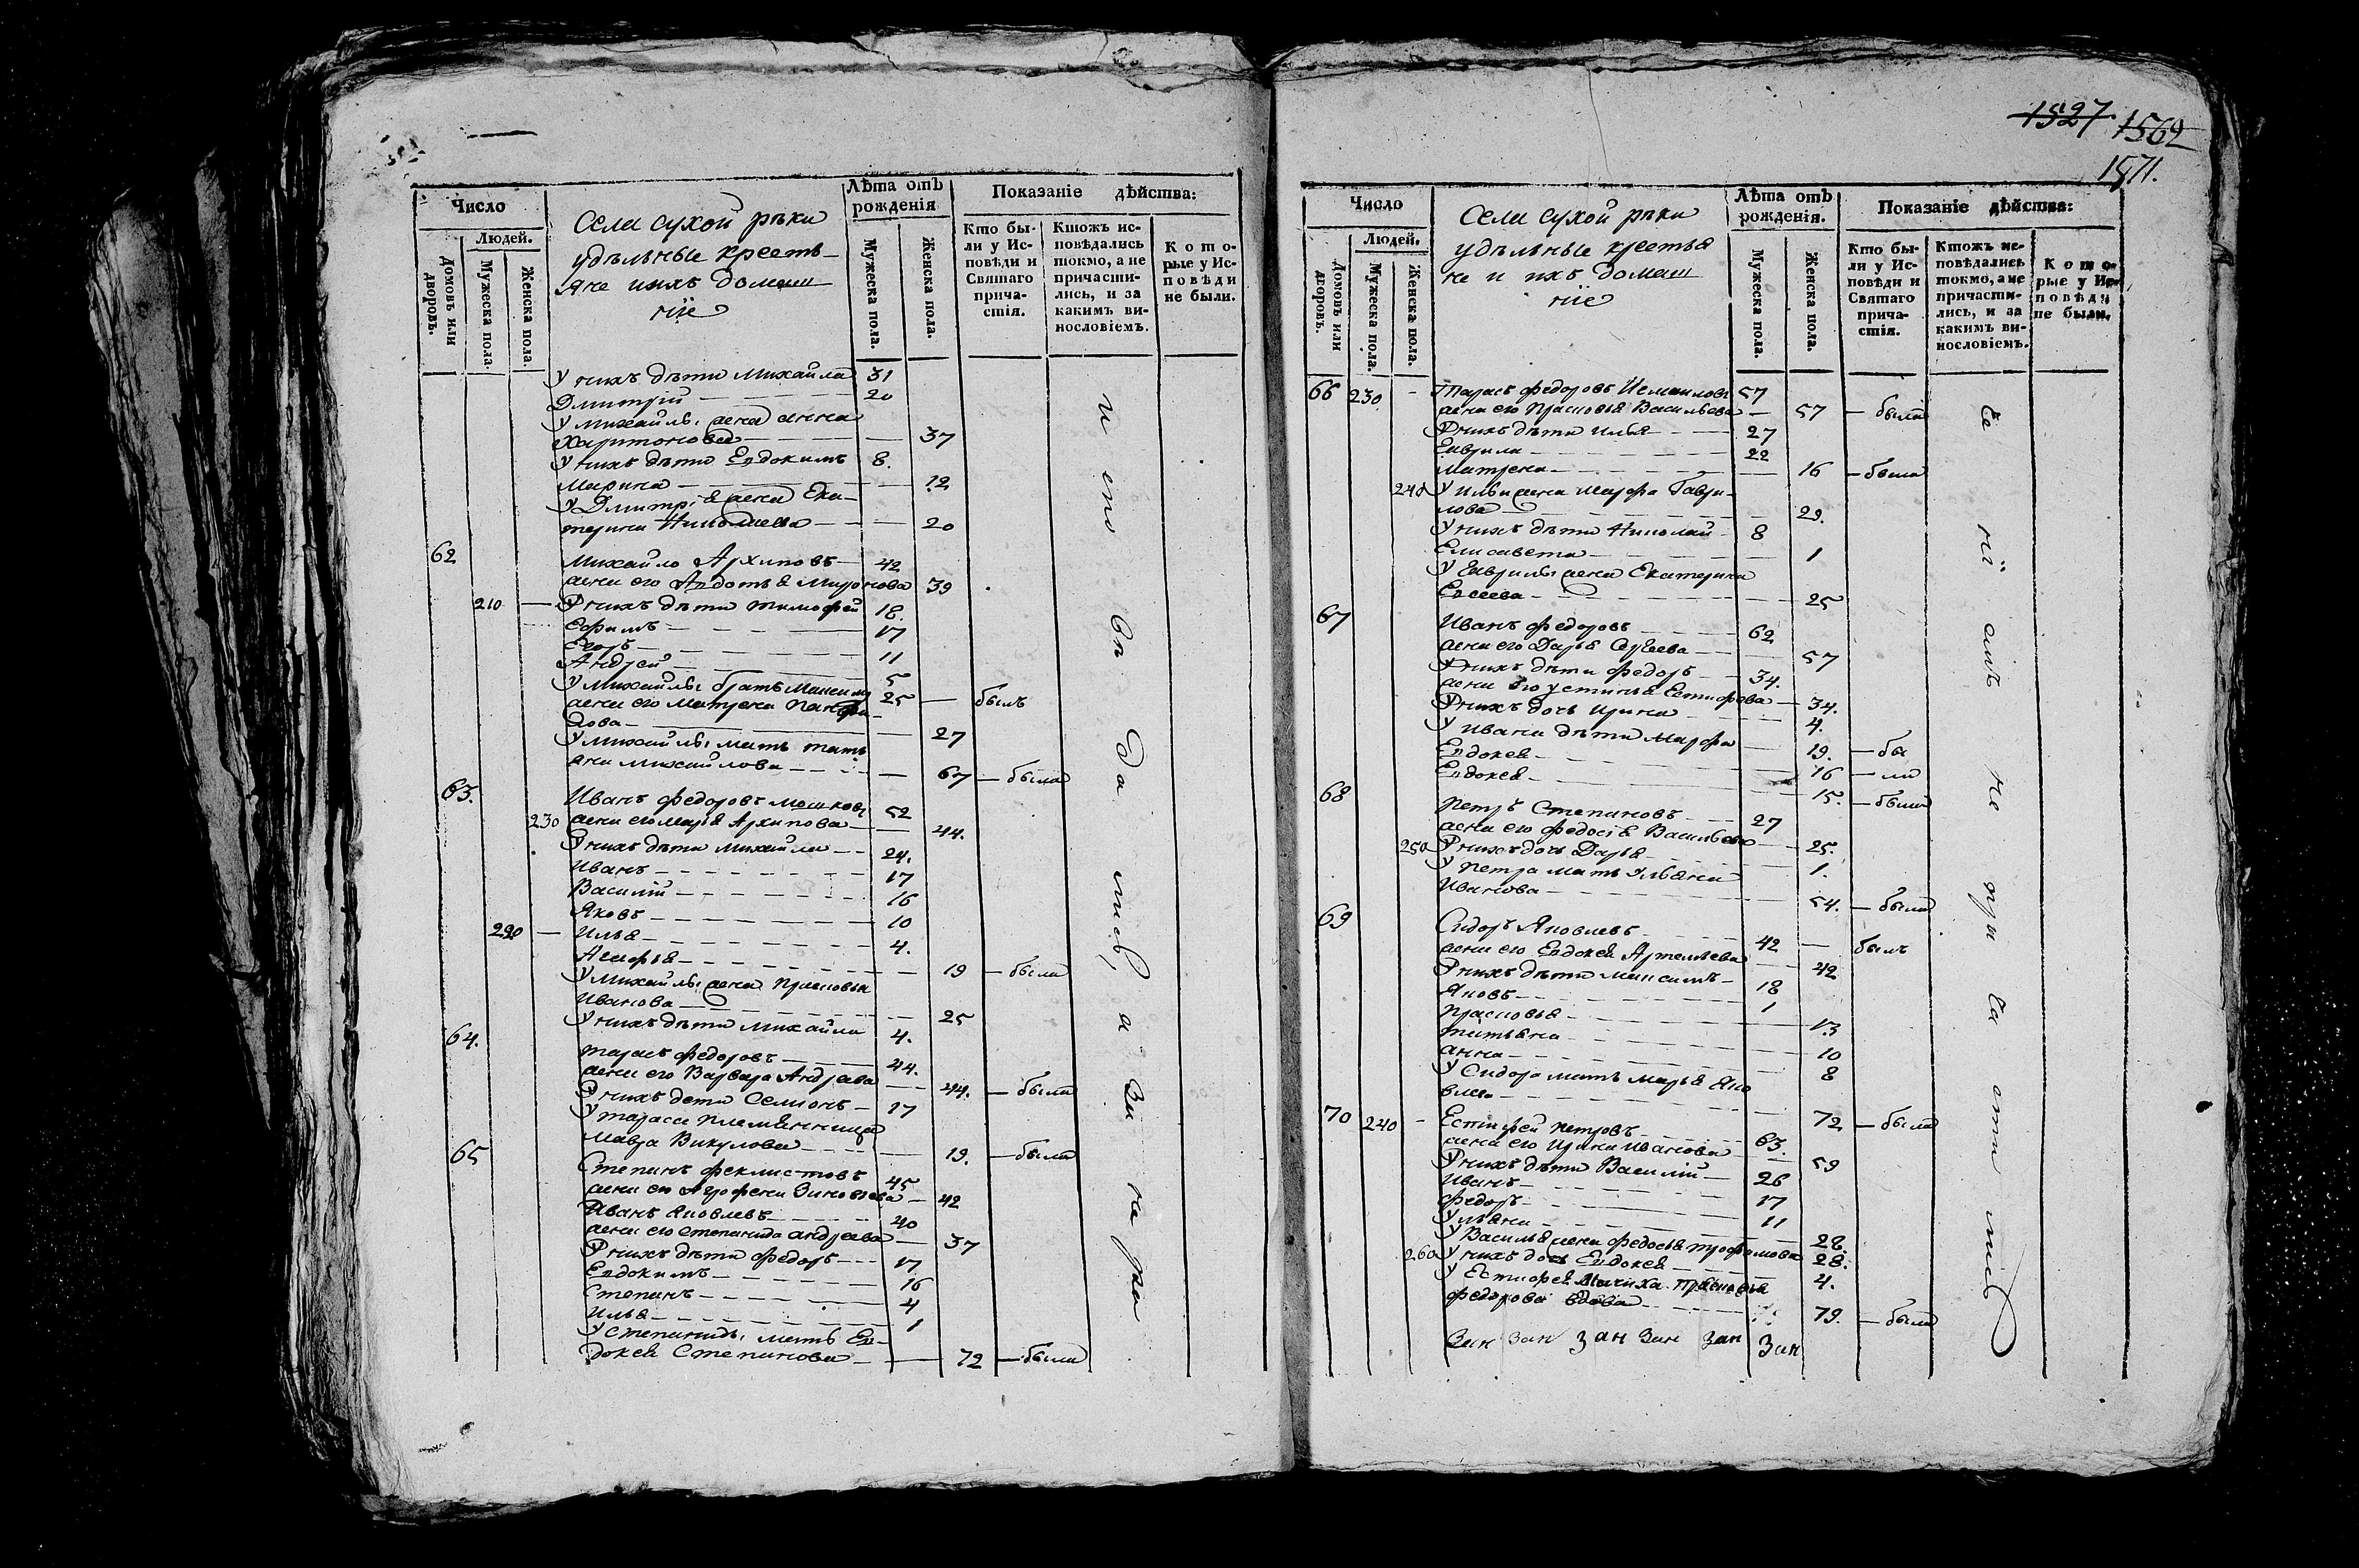 Число
Людей.
Домовъ или дворовъ.
Мужеска пола.
Женска пола.
Села сухой рѣки
удѣльные кресть-
яне и ихъ домаш
ніе
Лѣта отъ рождения
Мужеска пола.
Женска пола.
Показаніе дѣйства:
Кто бы-
ли у Ис-
повѣди и
Святаго
прича-
стія.
Ктожъ ис-
повѣдались
токмо, а не
причасти-
лись, и за
какимъ ви-
нословіемъ.
Кото-
рые у Ис-
повѣди
не были.
У нихъ дѣти Михайла 31
Дмитрій 20
У Михайлы жена Анна
Харитонова 37
У нихъ дѣти Евдокимъ 8.
Марина 12
У Дмитрія жена Ека-
терина Николаева 20
62 Михайло Архиповъ 42
жена его Авдотья Миронова 39
210 У нихъ дѣти Тимофей 18.
Ефимъ 17
Егоръ 11
Андрей 5
У Михайлы братъ Максимъ 25 — былъ
жена его Матрена
27
У Михайлы мать Тать
яна Михайлова 67 — была
63. Иванъ Федоровъ 52
230 жена его Марья Архипова 44.
У нихъ дѣти Михайла 24.
Иванъ 17
Василій 16
Яковъ 10
220 Илья 4.
19 — была
У Михайлы жена Прасковья
Иванова 25
У нихъ дѣти Михайла 4.
64. Тарасъ Федоровъ 44.
жена его Варвара Андреева 44. — была
У нихъ дети Семионъ 17
У Тараса племянница
Мавра Викулова 19. — была
65 Степанъ Феклистовъ 45
жена ею Агрофена Зиновьева 42
Иванъ Яковлевъ 40
жена его Степанида Андреева 37
У нихъ дѣти Федоръ 17
Евдокимъ 16
Степанъ 4
Илья 1
У Степаниды мать Ев-
докея Степанова 72 — была
1527 1562
1571.
Число
Людей.
Домовъ или дворовъ.
Мужеска пола.
Женска пола.
Села сухой рѣки
удѣльные крестья
не и ихъ домаш
ніе
Лѣта отъ рождения.
Мужеска пола.
Женска пола.
Показаніе дѣйства:
Кто бы-
ли у Ис-
повѣди и
Святаго
прича-
стія.
Ктожъ ис-
повѣдались
токмо, а не
причасти-
лись, и за
какимъ ви-
нословіемъ.
Кото-
рые у Ис-
повѣди
не были.
66 230 Тарасъ Федоровъ 57
жена его Прасковья Васильева 57 — была
У нихъ дѣти Илья 27
Гаврила 22
Матрена 16 — была
240 У Ильи жена Марфа Гаври-
лова 29.
У нихъ дѣти Николай 8
Елисавета 1
У Гаврилы жена Екатерина
Евсеева 25
67 Иванъ Федоровъ 62
жена его Дарья 57
У нихъ дѣти Федоръ 34.
жена его Устинья Естифева 34.
У нихъ дочь Ирина 4.
У Ивана дѣти Марфа 19. — бы
Евдокея 16 — ли
Евдокея 15. — была
68 Петръ Степановъ 27
жена его Федосія Васильева 25.
250 У нихъ дочь Дарья 1.
У Петра мать Ульяна
Иванова 54. — была
69 Сидоръ Яковлевъ 42 — былъ
жена его Евдокея Артемьева 42
У нихъ дѣти Максимъ 18
Яковъ 1
Прасковья 13
Татьяна 10
Анна 8
У Сидора мать Марья Яко
влева 72 — была
70 240 Естифей Петровъ 63.
жена его Ирина Иванова 59
У нихъ дѣти Василій 26
Иванъ 17
Федоръ 11
Ульяна 22.
У Василья жена Федосья Трофимова 28.
260 У нихъ дочь Евдокея 4.
У Естифея Мачиха Прасковья
Федорова вдова 79. — была
Зак Зак Зак Зак Зак Зак